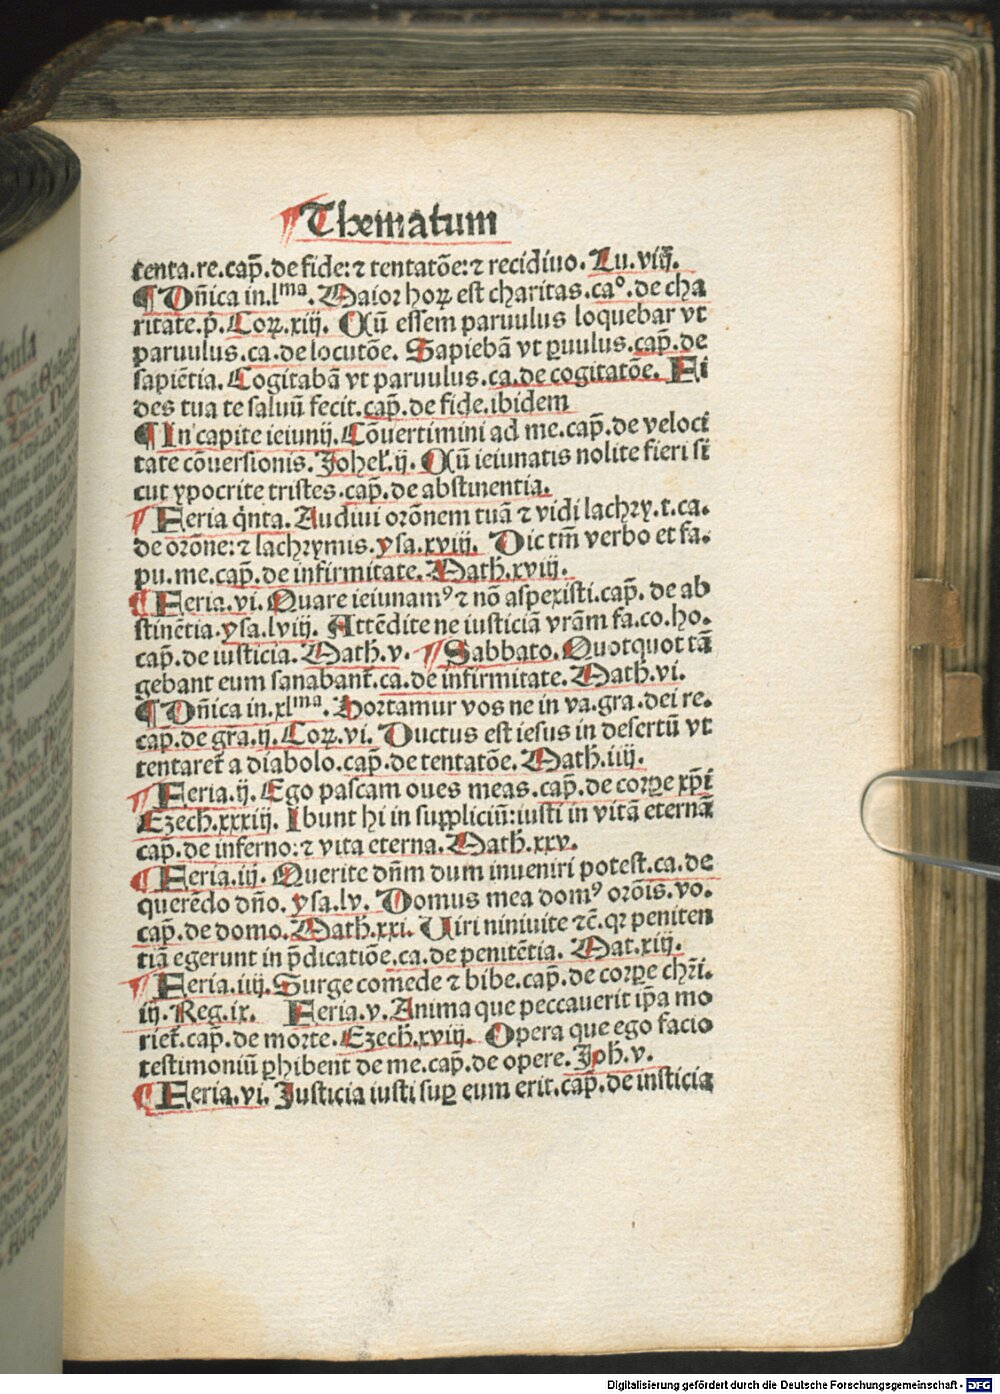 Thematum
tenta.re.cap̃.de fide:⁊ tentatõe:⁊ recidiuo. Lu.viij.
¶ Dñica in.lᵐᵃ. Maior hoꝝ est charitas.caº.de cha
ritate.p̃.Coꝝ.xiij. Cũ essem paruulus loquebar vt
paruulus.ca.de locutõe. Sapiebã vt ꝑuulus.cap̃.de
sapiẽtia. Cogitabã vt paruulus.ca.de cogitatõe. Fi
des tua te saluũ fecit.cap̃.de fide.ibidem
¶ In capite ieiunij. Cõuertimini ad me.cap̃.de veloci
tate cõuersionis. Johel̃.ij. Cũ ieiunatis nolite fieri si
cut ypocrite tristes.cap̃.de abstinentia.
Feria q̇nta. Audiui orõnem tuã ⁊ vidi lachry.t.ca.
de orõne:⁊ lachrymis.ysa.xviij. Dic tm̃ verbo et fa.
pu.me.cap̃.de infirmitate. Math̃.xviij.
¶ Feria.vi. Quare ieiunamꝰ ⁊ nõ aspexisti.cap̃. de ab
stinẽtia.ysa.lviij. Attẽdite ne iusticiã vr̃am fa.co.ho.
cap̃.de iusticia. Math̃.v. Sabbato. Quotquot tã
gebant eum sanabant̃.ca.de infirmitate. Math̃.vi.
¶ Dñica in.xlᵐᵃ. Hortamur vos ne in va.gra.dei re.
cap̃.de gr̃a.ij. Coꝝ.vi. Ductus est iesus in desertũ vt
tentaret̃ a diabolo.cap̃.de tentatõe. Math̃.iiij.
Feria.ij. Ego pascam oues meas.cap̃.de corꝑe xp̃i
Ezech̃.xxxiij. Ibunt hi in suppliciũ:iusti in vitã eternã
cap̃.de inferno:⁊ vita eterna. Math̃.xxv.
¶ Feria.iij. Querite dñm dum inueniri potest.ca.de
querẽdo dño. ysa.lv. Domus mea domꝰ orõis.vo.
cap̃.de domo. Math̃.xxi. Uiri niniuite ⁊c̃.qꝛ peniten
tiã egerunt in p̃dicatiõe.ca.de penitẽtia. Mat.xiij.
Feria.iiij. Surge comede ⁊ bibe.cap̃.de corꝑe chr̃i.
iij. Reg.ix. Feria.v. Anima que peccauerit ip̃a mo
riet̃.cap̃.de morte. Ezech̃.xviij. Opera que ego facio
testimoniũ ꝑhibent de me.cap̃.de opere. Joh̃.v.
¶ Feria.vi. Justicia iusti suꝑ eum erit.cap̃.de insticia
Digitalisierung gefördert durch die Deutsche Forschungsgemeinschaft - DFG